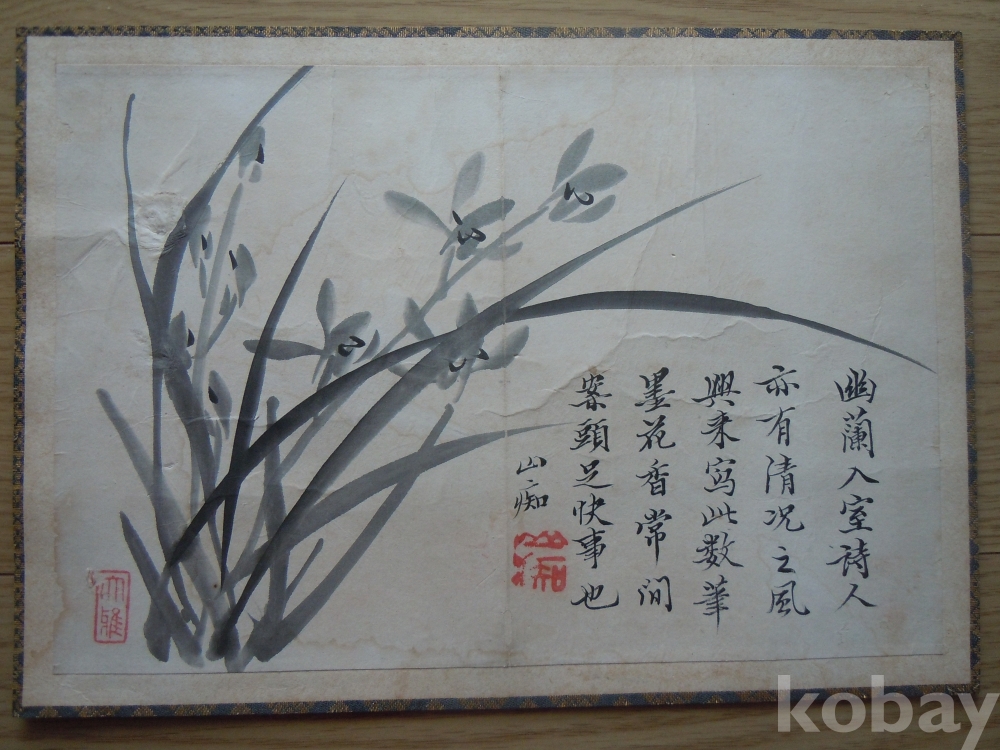 幽蘭入室詩人
亦有清況之風
興来寫此数筆
墨花香常間
案頭足快事也
山痴
山痴
大雅
kobay